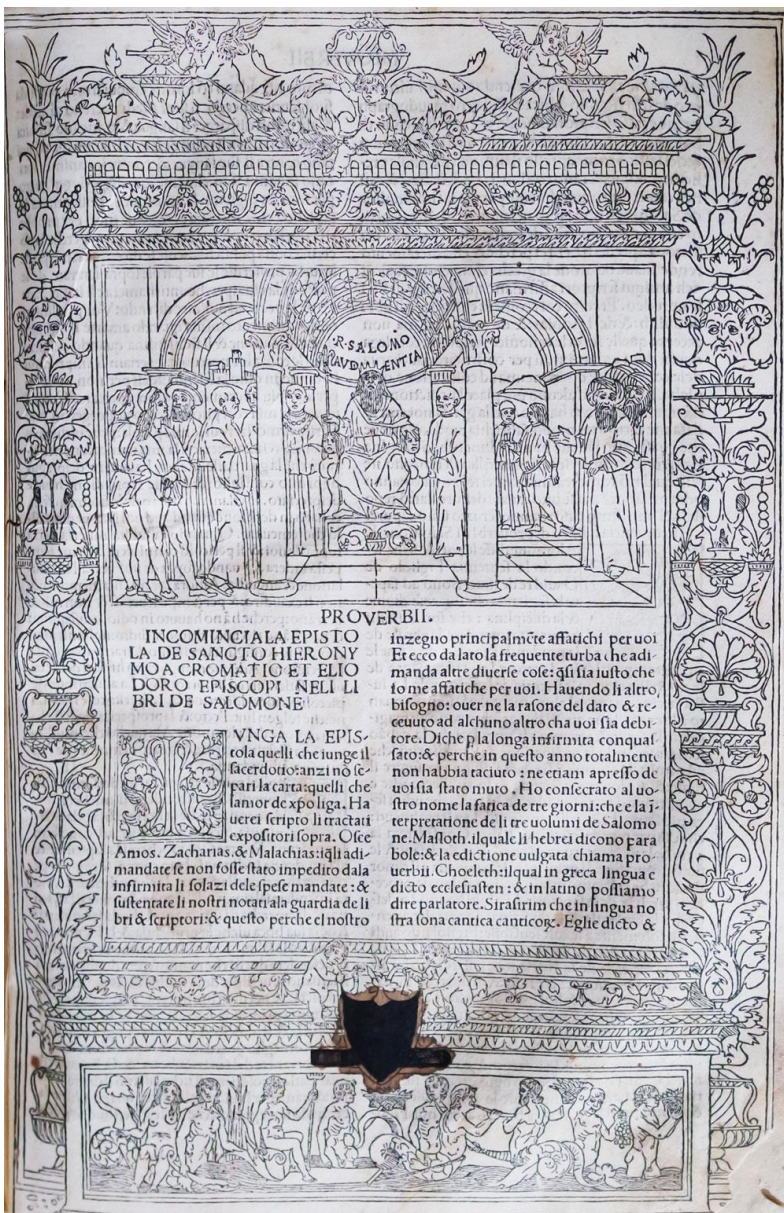 ·R·SALOMO
PROVERBII.
INCOMINCIA LA EPISTO
LA DE SANCTO HIERONY
MO A CROMATIO ET ELIO
DORO EPISCOPI NELI LI
BRI DE SALOMONE
IVNGA LA EPIS-
tola quelli che iunge il
sacerdotio: anzi nō se-
pari la carta: quelli che
lamor de xpo liga. Ha
uerei scripto li tractati
expositori sopra. Osee
Amos. Zacharias. & Malachias: iq̄li adi-
mandate se non fosse stato impedito dala
infirmita li solazi dele spese mandate: &
sustentate li nostri notari ala guardia de li
bri & scriptori: & questo perche el nostro
inzegno principalmēte affatichi per uoi
Et ecco da lato la frequente turba che adi-
manda altre diuerse cose: q̄si sia iusto che
io me affatiche per uoi. Hauendo li altro,
bisogno: ouer ne la rasone del dato & re-
ceuuto ad alchuno altro cha uoi sia debi-
tore. Diche p la longa infirmita conquas
sato: & perche in questo anno totalmente
non habbia taciuto: ne etiam apresso de
uoi sia stato muto. Ho consecrato al uo-
stro nome la fatica de tre giorni: che e la ī-
terpretatione de li tre uolumi de Salomo
ne. Masloth. ilquale li hebrei dicono para
bole: & la edictione uulgata chiama pro-
uerbii. Choeleth: ilqual in greca lingua e
dicto ecclesiasten: & in latino possiamo
dire parlatore. Sirasirim che in lingua no
stra sona cantica canticoꝝ. Eglie dicto &